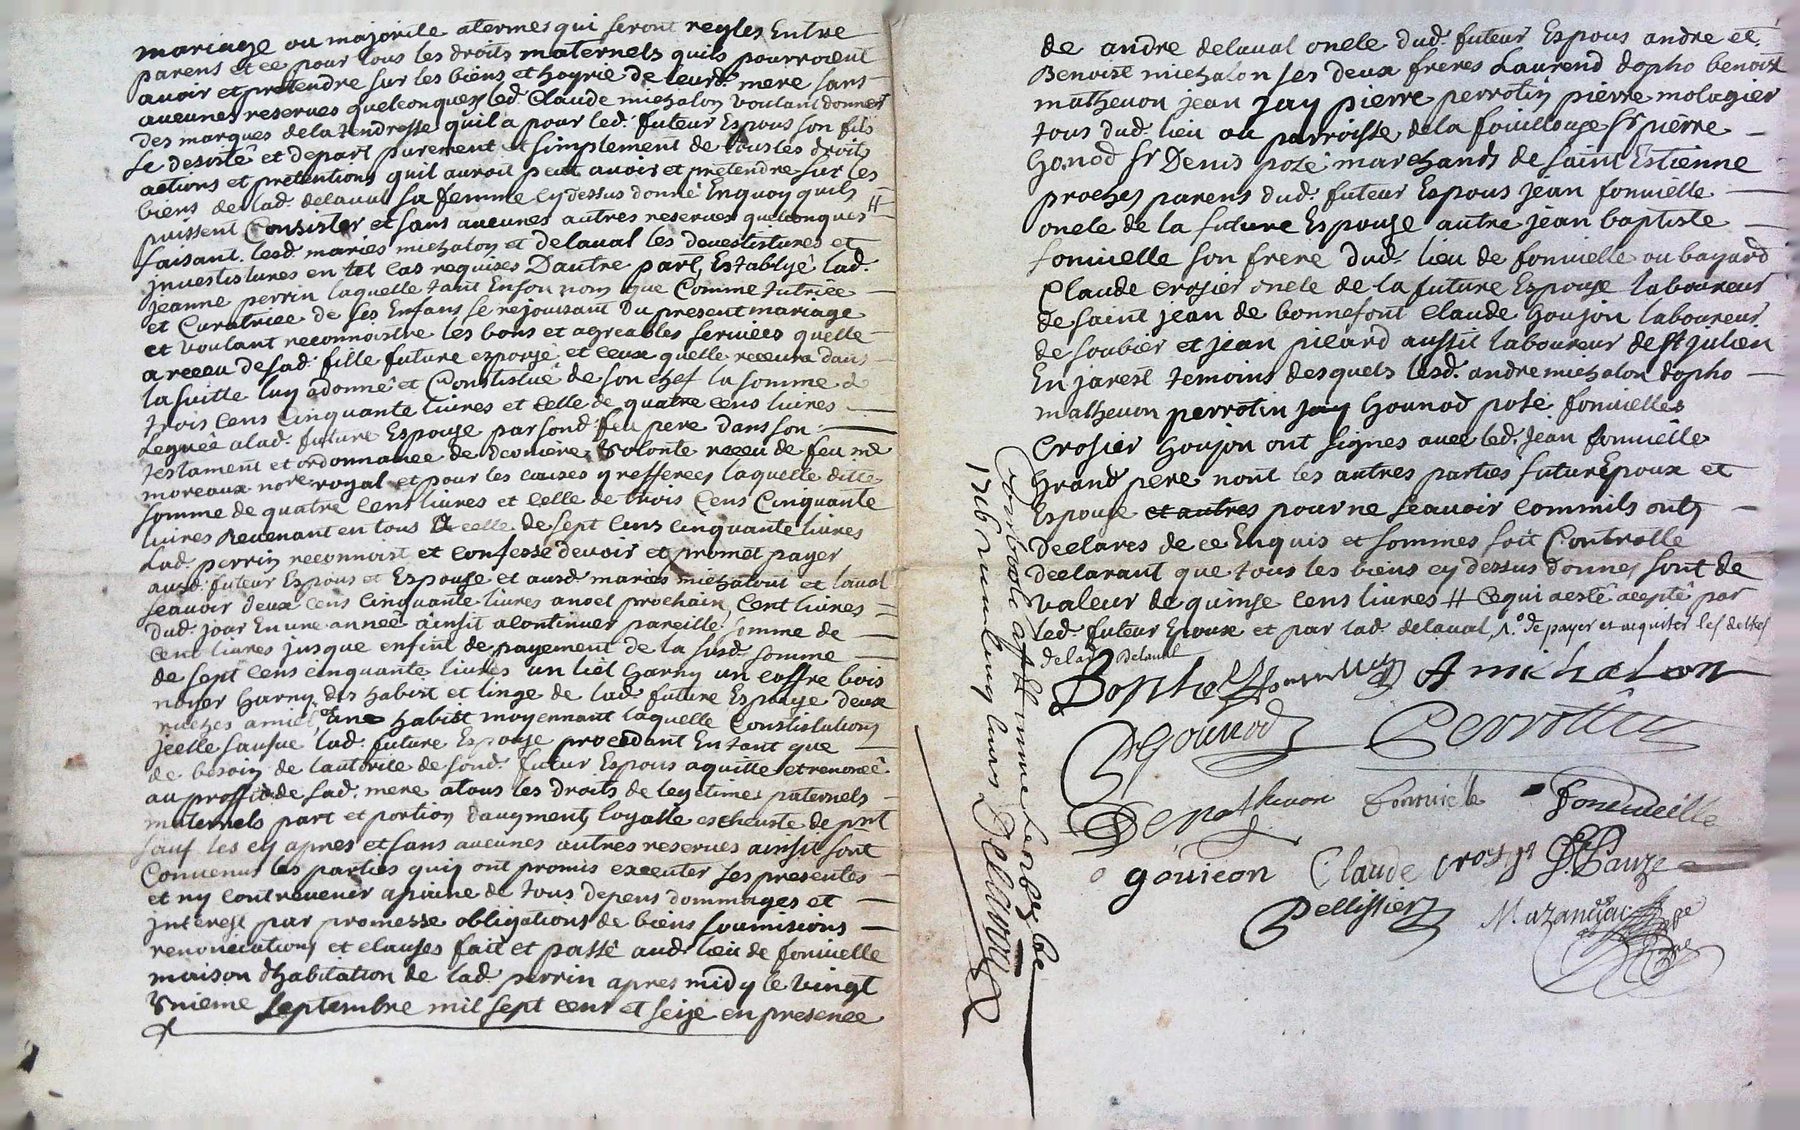 mariage ou majorite atermes qui seront regles Entre
parens et ce pour tous les droits maternels quils pourroient
avoir et pretendre sur les biens et hoyrie de leurd. mere sans
aucunes reserves quelconques led. Claude michalon voulant donner
des marques de la tendresse quil a pour led. futeur Espous son fils
se desiste et depart purement et simplement de tous les droits
actions et pretentions quil auroit peut avoir et pretendre sur les
biens de lad. delaval sa femme cy dessus donné Enquoy quils
puissent Consister et sans aucunes autres reserves quelconques #
faisant lesd. maries michalon et delaval les devestistures et
jnvestistures en tel cas requises D'autre part Establye lad.
jeanne perrin laquelle tant En son nom que Comme tutrice
et Curatrice de ses Enfans se rejouisant du present mariage
et voulant reconnoistre les bons et agreables services quelle
a receu de sad. fille future espouse et ceux quelle recevra dans
la suitte luy a donné et Constistué de son chef la somme de
trois cens cinquante livres et celle de quatre cens livres
leguée a lad. future Espouse par sond. feu pere dans son
testament et ordonnance de derniere volonte receu de feu me
moreaux nore royal et pour les causes y refferees laquelle ditte
somme de quatre cens livres et celle de trois Cens Cinquante
livres Revenant en tous a celle de sept Cens cinquante livres
Lad. perrin reconnoist et confesse devoir et promet payer
ausd. futeur Espous et Espouse et ausd. maries michalont et laval
scavoir deux cens cinquante livres a noel prochain, Cent livres
dud. jour En une année ainsit a continuer pareille somme de
cent livres jusque enfint de payement de la susd. somme
de sept cens cinquante livres un liet garny un coffre bois
noyer garny des habist et linge de lad. future Espouse deux
ruches amiel une habist moyennant laquelle Constistution
jcelle sausue lad. future Espouse procedant En tant que
de besoin de lautorite de sond. futur Espous a quitte et renoncé
au proffit de sad. mere a tous les droits de legetimes paternels
maternels part et portion daugment loyalle escheuste de
sauf les cy apres et sans aucunes autres reserves ainsit sont
Convenus les parties quy ont promis executer ses presentes
et ny contrevenir apaine de tous depens dommages et
jnterest par promesse obligations de biens soumisions
renonciations et clauses fait et passé aud. lieu de fonvielle
maison dhabitation de lad. perrin apres midy le vingt
Vnieme septembre mil sept cent et seize en presence
de andre delaval oncle dud. futeur Espous andre et
Benoist michalon ses deux freres Laurend dopho benoist
mathevon jean jay pierre perrotin pierre molagier
tous dud. lieu ou parroisse de la fouillouze Sr pierre
Gonod Sr Denis pozé marchands de Saint Estienne
proches parens dud. futeur Espous jean fonvielle
oncle de la future Espouse autre jean baptiste
fonvielle son frere dud. lieu de fonvielle ou bayard
Claude crosier oncle de la future Espouse laboureur
de saint jean de bonnefont claude goujon laboureur
de soubier et jean picard aussit laboureur de st julien
En jarest temoins desquels lesd. andre michalon dopho
mathevon perrotin jay Gounod pozé fonvielles
crosier Goujon ont signes avec led. jean fonvielle
Grand pere nont les autres parties futur Epoux et
Espouse et autres pour ne scavoir commils onty
declares de ce Enquis et sommes soit Controlle
declarant que tous les biens cy dessus donnes sont de
valeur de quinse cens livres # ce qui a esté acepté par
led. futeur Epoux et par lad. delaval, de payer et aquiter les debtes
de lad. delaval
Dopho fonvielle A michalon
Gounod Perrottin
De mathevon fonvielle fonvieille
goúieon Claude crosyr Pauze
Pellissier Mazandjac
1716